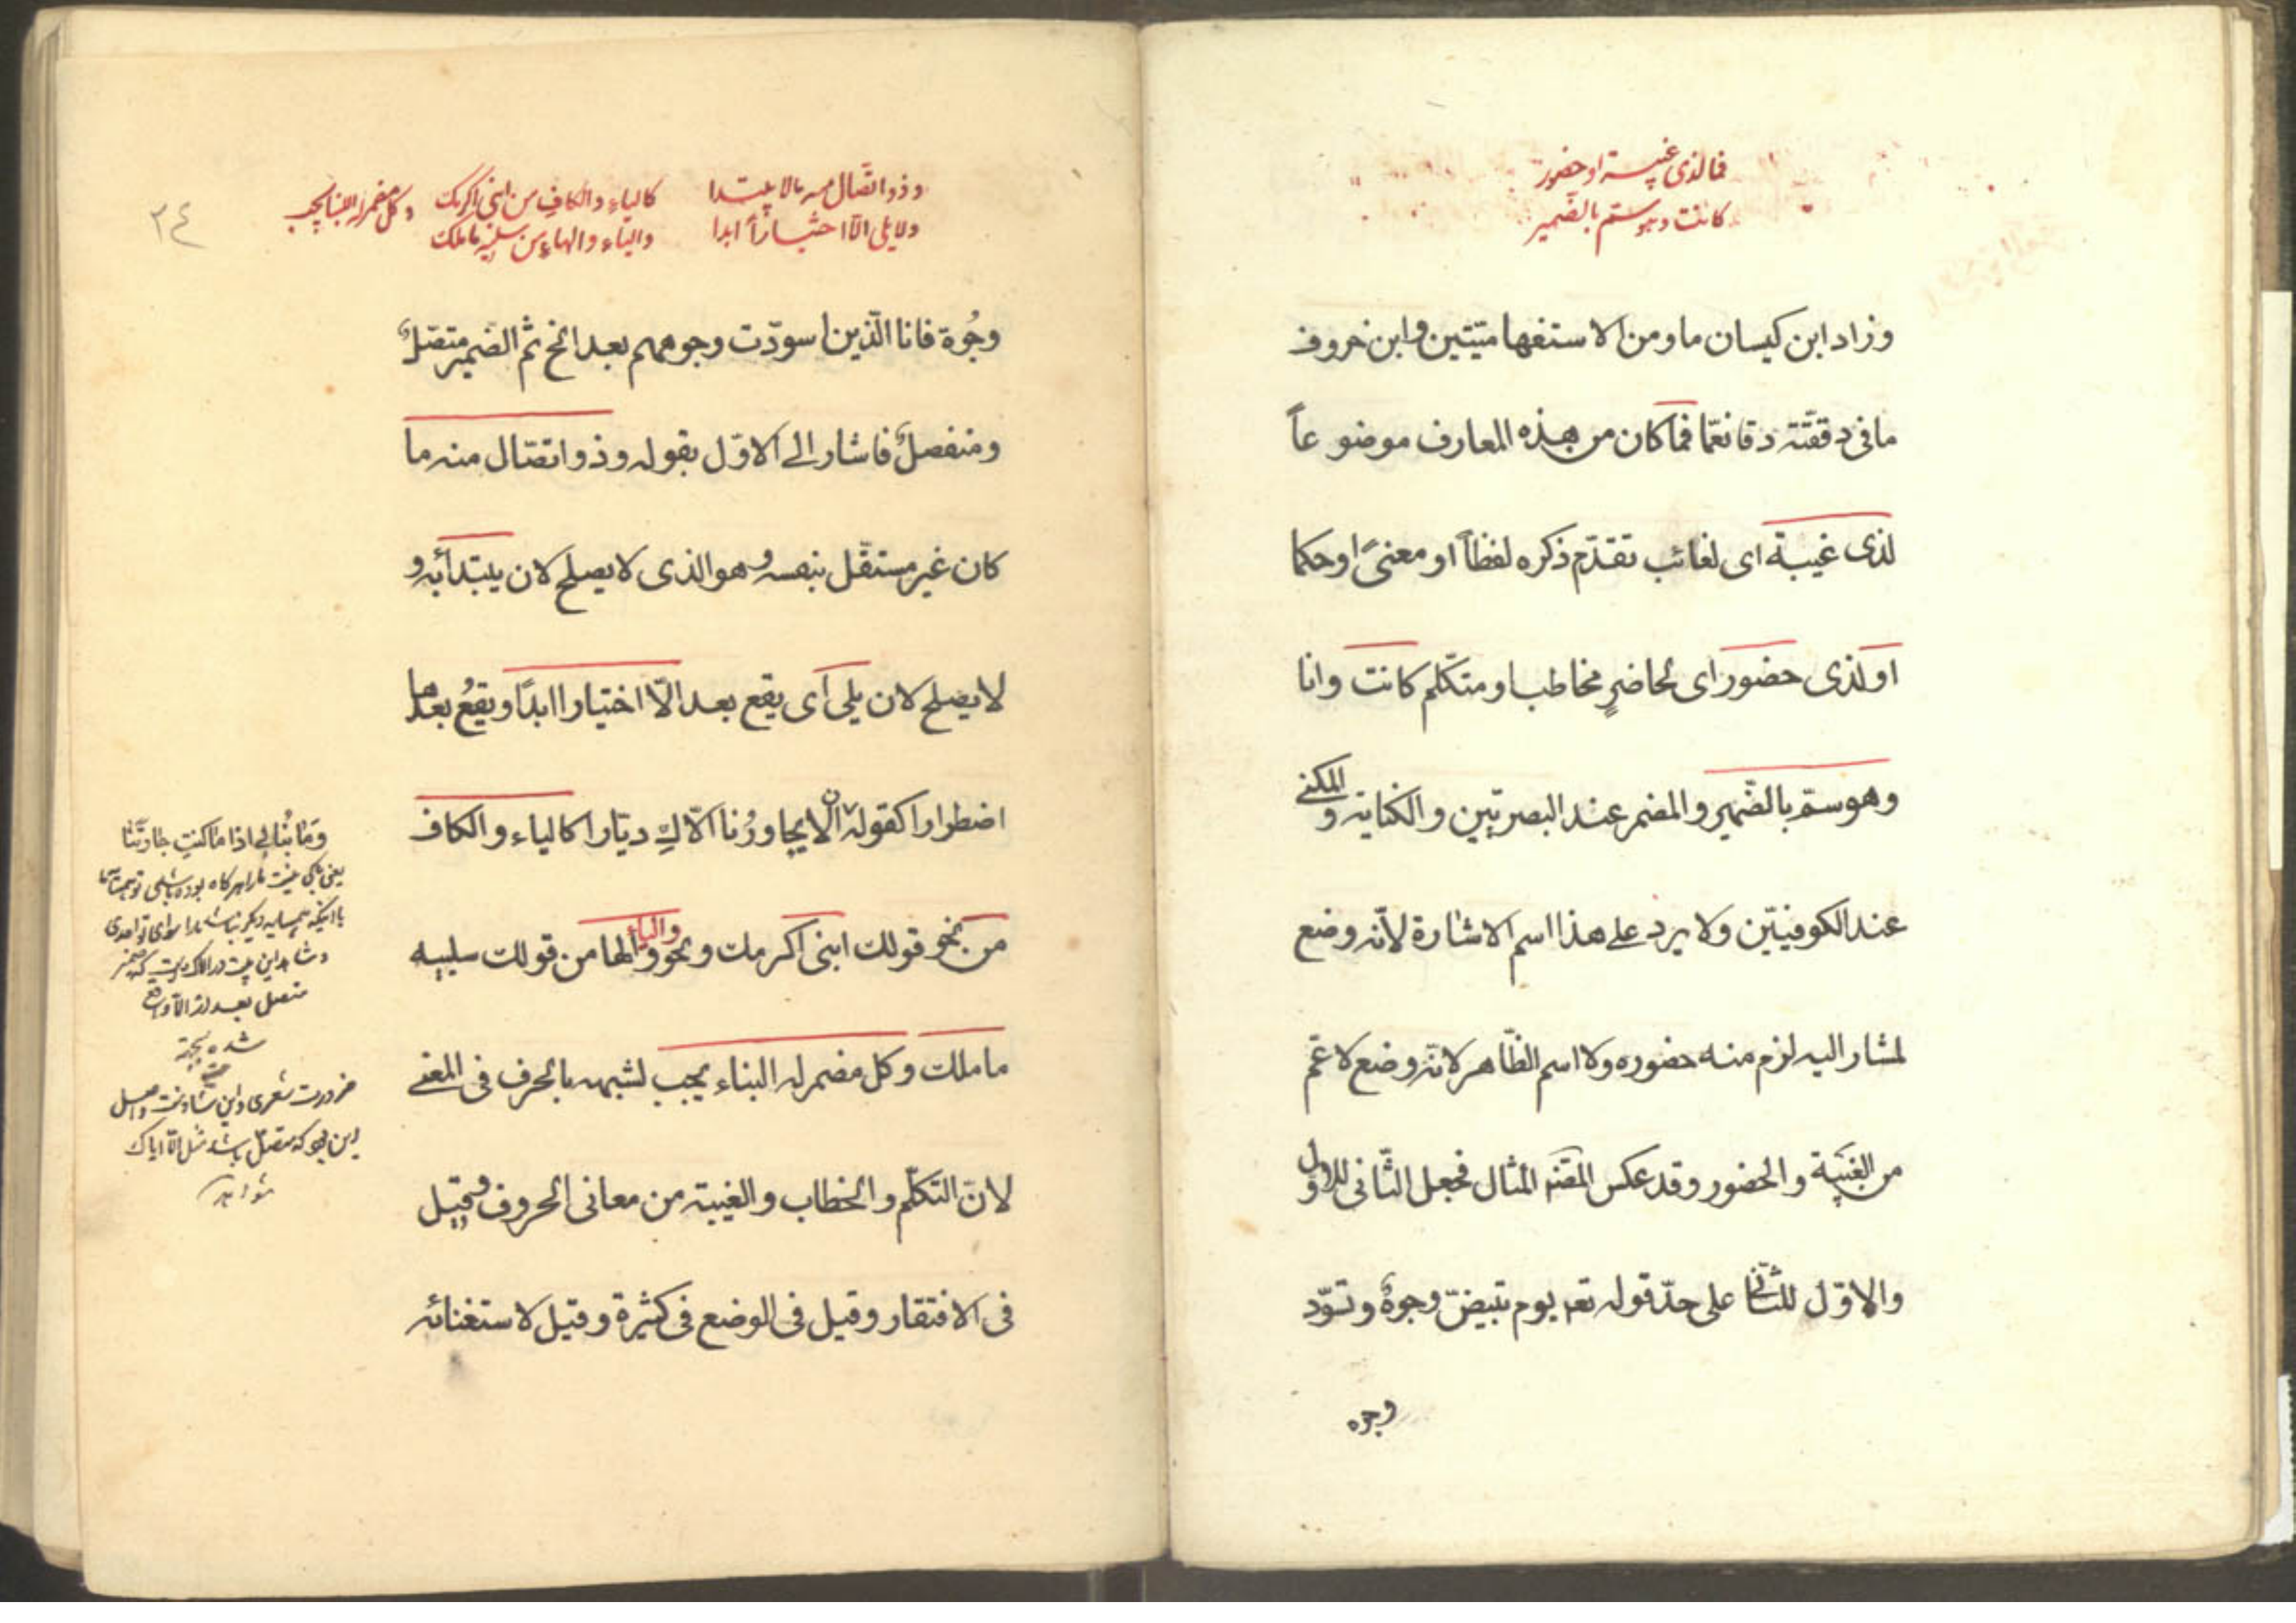 فما لذی غیبة او حضور
کانت وهو سمّ بالضمیر
وزاد ابن کیسان ما ومن الاستفهامیّتین وابن خروف
ما فی دققته دقا نعمّا فما کان من هذه المعارف موضوعاً
لذی غیبة ای لغائب تقدّم ذکره لفظاً او معنیً او حکما
او لذی حضور ای لحاضرٍ مخاطب او متکلّم کانت وانا
وهو سمّ بالضّمیر والمضمر عند البصریّین والکنایة والمکنی
عند الکوفییّن ولا یرد علی هذا اسم الاشارة لانّه وضع
لمشار الیه لزم منه حضوره ولا اسم الظّاهر لانّه وضع لاعمّ
من الغیبة والحضور وقد عکس المصّنف المثال فجعل الثّانی للاول
والاوّل للثّانی علی حدّ قوله تعم یوم تبیضّ وجوهٌ وتسوّد
وجوه
۳٤
وذو اتّصال منه ما لا یبتدا
ولا یلی الّا اختیاراً ابدا
کالیاء والکاف من ابنی اکرمک
والیاء والهاء من سلیه ما ملک
وکل مضمر له البنا یجب
وجُوه فاما الّذین اسودّت وجوههم بعد الخ ثم الضمیر متصّلٌ
ومنفصلٌ فاشار الی الاوّل بقوله وذو اتصّال منه ما
کان غیر مستقّل بنفسه وهو الذی لا یصلح لان یبتدأ به و
لا یصلح لان یلی ای یقع بعد الّا اختیارا ابدًا ویقعُ بعدها
اضطرارا کقوله ان لا یجاورُنا الّا کِ دیّارا کالیاء والکاف
من نحو قولک ابنی اکرمک ونحو والیاء والها من قولک سلیه
ما ملک وکل مضمر له البناء یجب لشبهه بالحرف فی المعنی
لانّ التکلّم والخطاب والغیبة من معانی الحروف وقیل
فی الافتقار وقیل فی الوضع فی کثیرة وقیل لاستغنائه
وَمٰا نُبٰالی اذا مٰا کنتِ جارتَنٰا
یعنی باکی نیست مارا هرگاه بوده باشی تو همسایه ما
با اینکه همسایه دیگر نباشد ما را سوای تو احدی
وشاهد این بیت در الاک است که ضمیر
متصل بعد از الّا واقع
شده بجهة
ضرورت شعری واین شاذ است واصل
این بود که منفصل باشد مثل الّا ایاک
شواهد